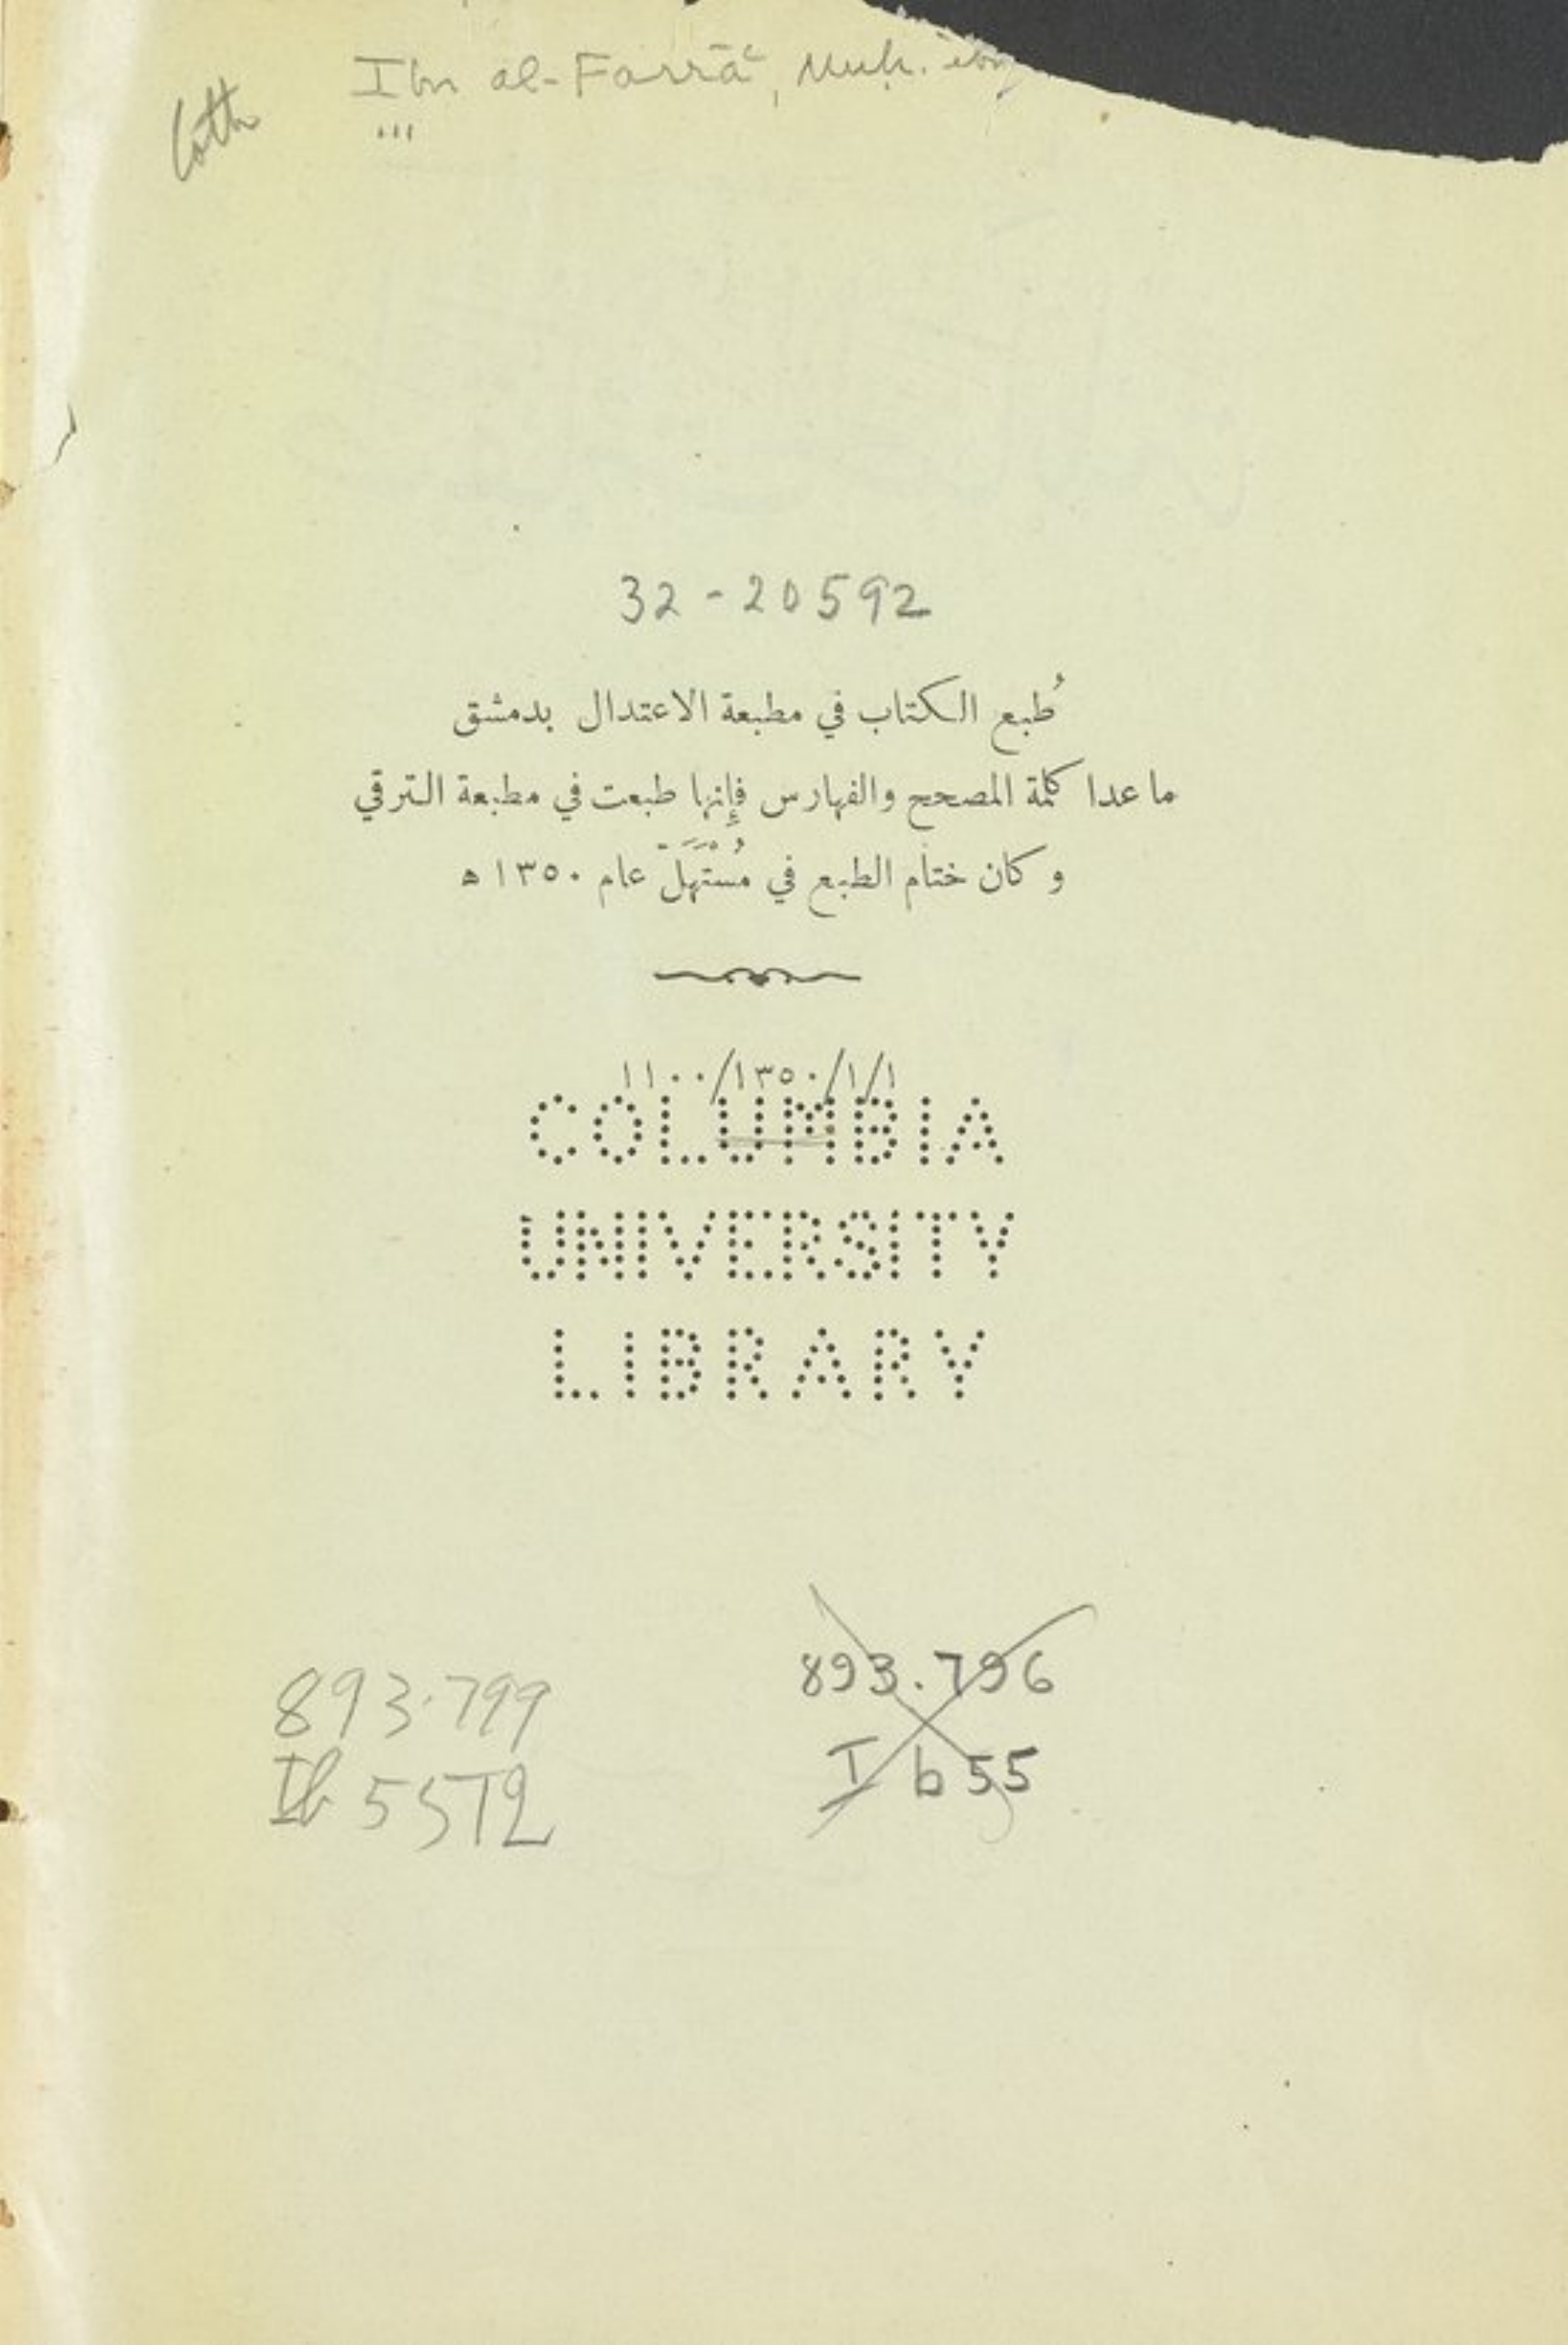 Ibn al-Farrā', Muḥ. ibn
32-20592
طُبع الكتاب في مطبعة الاعتدال بدمشق
ما عدا كلمة المصحح والفهارس فإِنها طبعت في مطبعة الترقي
وكان ختام الطبع في مُسْتَهَلّ عام ١٣٥٠ ه
١١٠٠/١٣٥٠/١/١
COLUMBIA
UNIVERSITY
LIBRARY
893.799
Ib55T2
893.796
Ib55